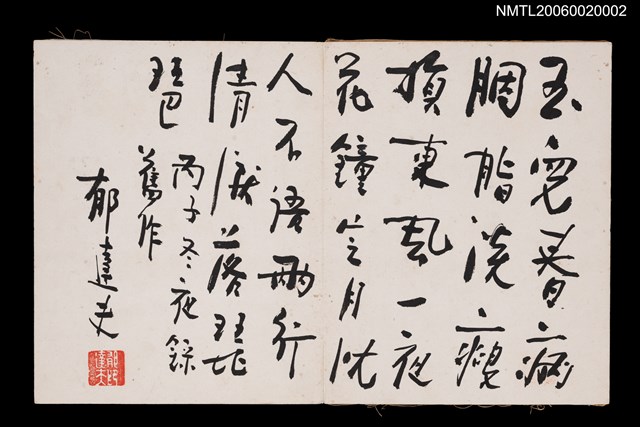 玉容春病
胭脂洗瘦
損東風一夜
花鐘定月沈
人不語兩行
清淚落琵
琶
丙子冬夜錄
舊作
郁達夫
NMTL20060020002